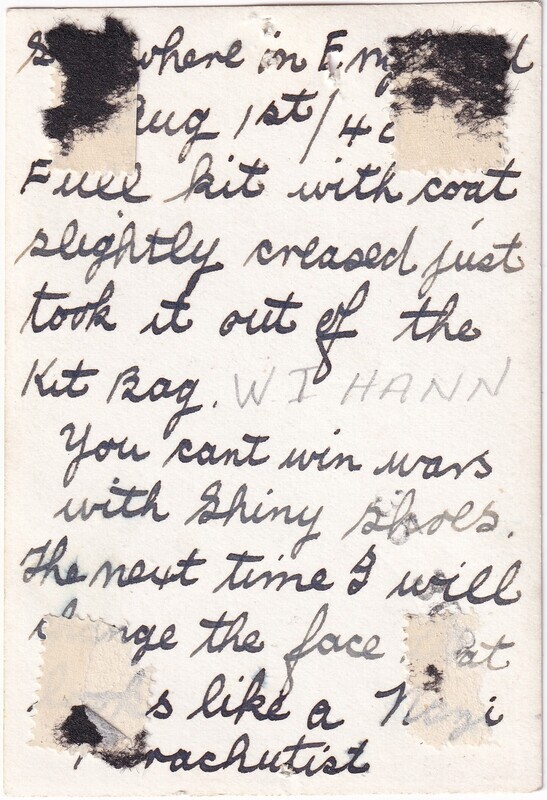 where in England
Aug 1st/40
Full kit with coat
slightly creased just
took it out of the
Kit Bag. W I HANN
You cant win wars
with Shiny shoes.
The next time I will
change the face that
looks like a Nazi
Parachutist